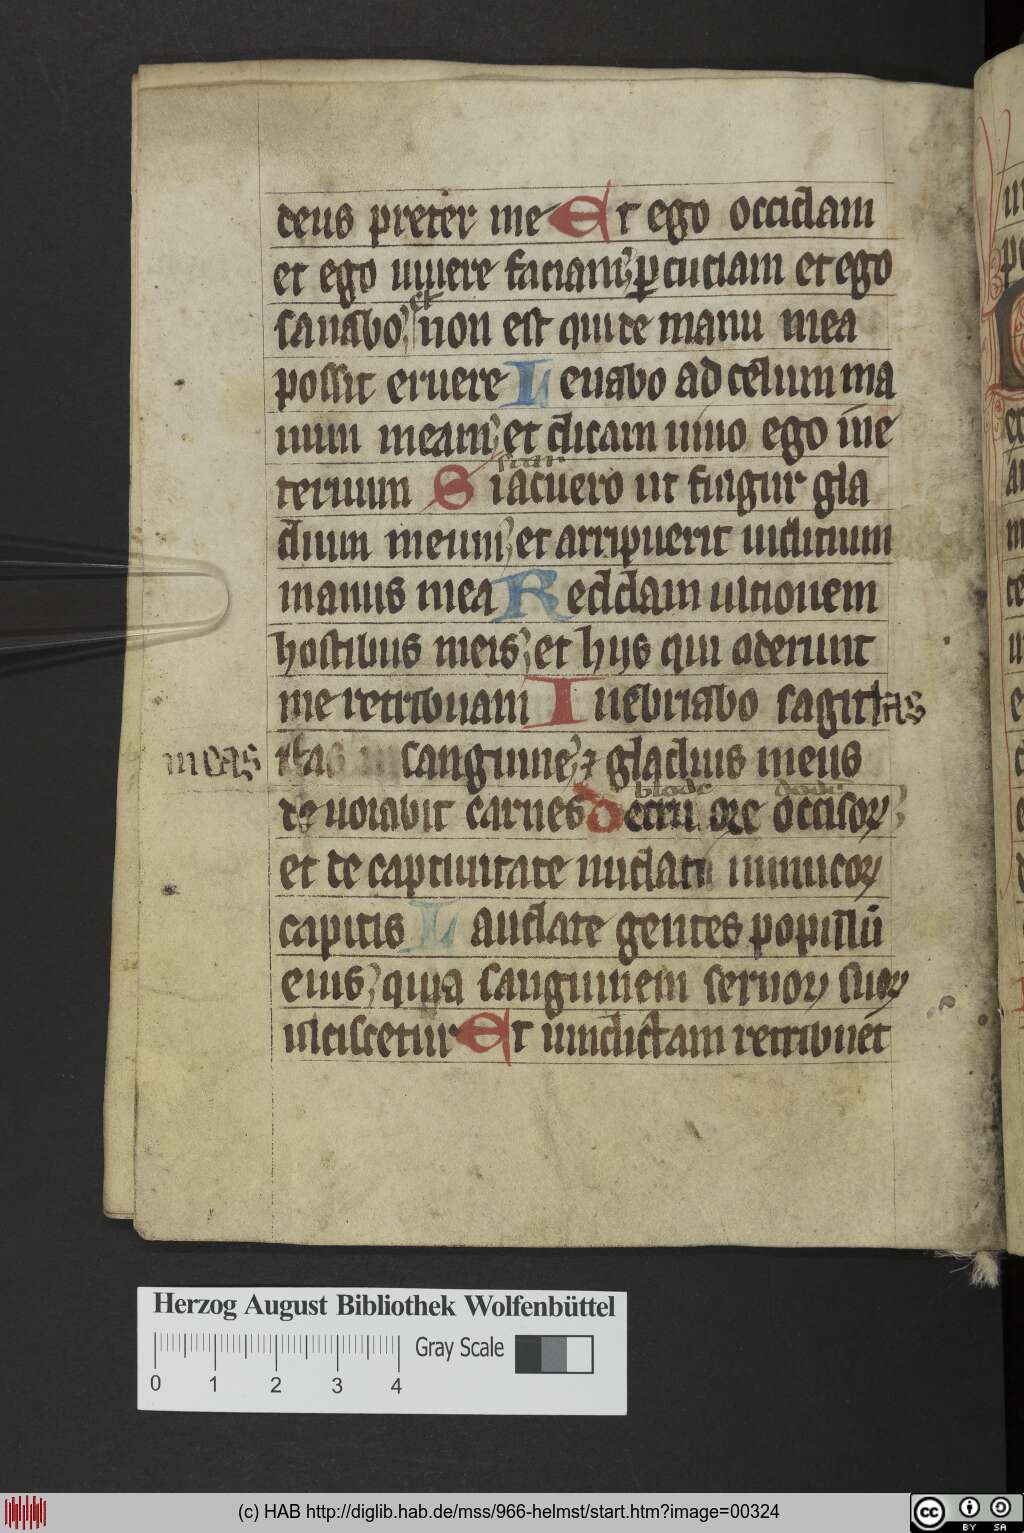 deus preter me Et ego occidam
et ego uiuere faciam ꝑcuciam et ego
sanabo et non est qui de manu mea
possit eruere Leuabo ad celum ma
num meam et dicam uiuo ego in e
ternum Si acuero ut fulgur gla
dium meum et arripuerit iudicium
manus mea Reddam ultionem
hostibus meis et hijs qui oderunt
me retribuam Inebriabo sagittas
meas sanguine ⁊ gladius meus
deuorabit carnes
blode dode
De cruore occisoꝝ
et de captiuitate nudati inimicoꝝ
capitis Laudate gentes populū
eius quia sanguinem seruoꝝ suoꝝ
ulciscetur Et uindictam retribuet
Herzog August Bibliothek Wolfenbüttel
Gray Scale
0 1 2 3 4
(c) HAB http://diglib.hab.de/mss/966-helmst/start.htm?image=00324
cc BY SA